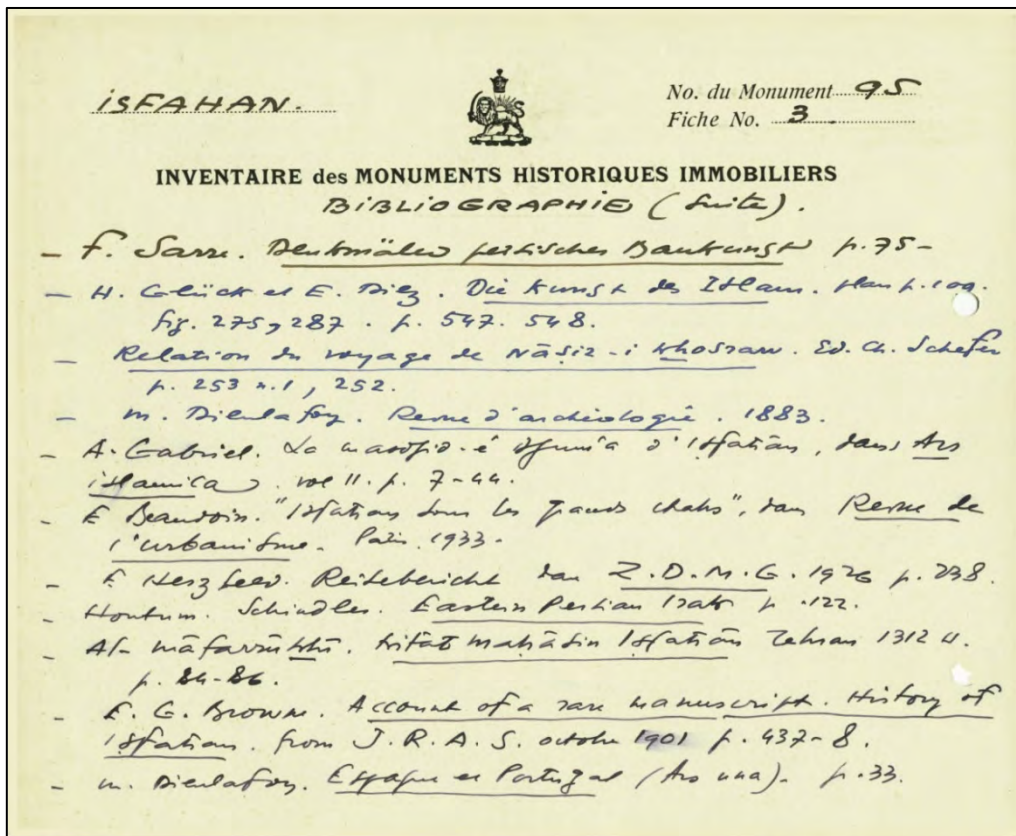 ISFAHAN.
No. du Monument 95
Fiche No. 3
INVENTAIRE des MONUMENTS HISTORIQUES IMMOBILIERS
BIBLIOGRAPHIE (Suite).
- F. Sarre. Denkmäler persischer Baukunst p. 75-
- H. Glück et E. Diez. Die Kunst des Islam. plan p. 109.
fig. 275, 287. p. 547. 548.
- Relation du voyage de Nāṣir-i Khosraw. Ed. Ch. Schefer
p. 253 n.1, 252.
- M. Dieulafoy. Revue d'archéologie. 1883.
- A. Gabriel. Le masdjid-é djum'a d'Isfahān, dans Ars
islamica. vol II. p. 7-44.
- E Beaudoin. "Isfahan sous les grands chahs", dans Revue de
l'urbanisme. Paris. 1933-
- E Herzfeld. Reisebericht dans Z.D.M.G. 1926 p. 238.
- Houtum. Schindler. Eastern Persian Irak p. 122.
- Al-māfarrūkhī. Kitāb maḥāsin Isfahān Tehran 1312 H.
p. 84-86.
- E. G. Browne. Account of a rare manuscript. History of
Isfahan. from J.R.A.S. octobre 1901 p. 437-8.
- M. Dieulafoy. Espagne et Portugal (Ars una). p. 33.